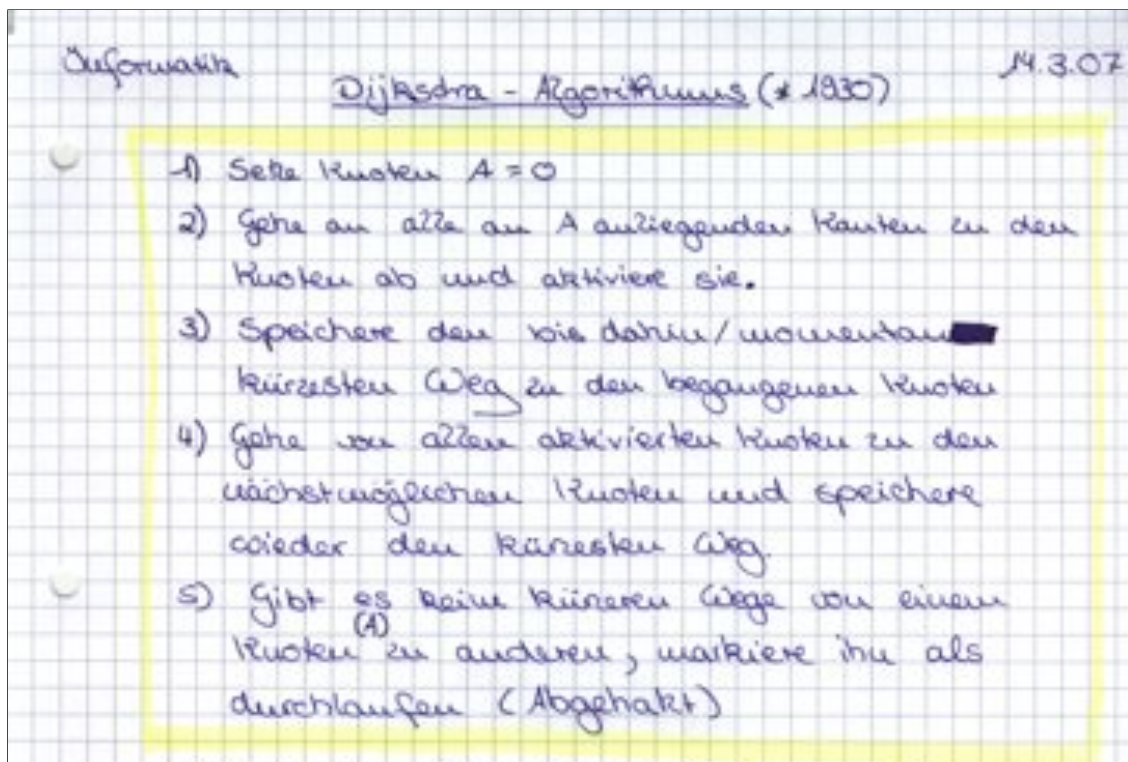 Informatik
14.3.07
Dijksdra - Algorithmus (* 1930)
1) Setze Knoten A = 0
2) Gehe an alle an A anliegenden Kanten zu den
Knoten ab und aktiviere sie.
3) Speichere den bis dahin/momentan
kürzesten Weg zu den begangenen Knoten
4) Gehe von allen aktivierten Knoten zu den
nächstmöglichen Knoten und speichere
wieder den kürzesten Weg.
5) Gibt es keine kürzeren Wege von einem
(A)
Knoten zu anderen, markiere ihn als
durchlaufen (Abgehakt)